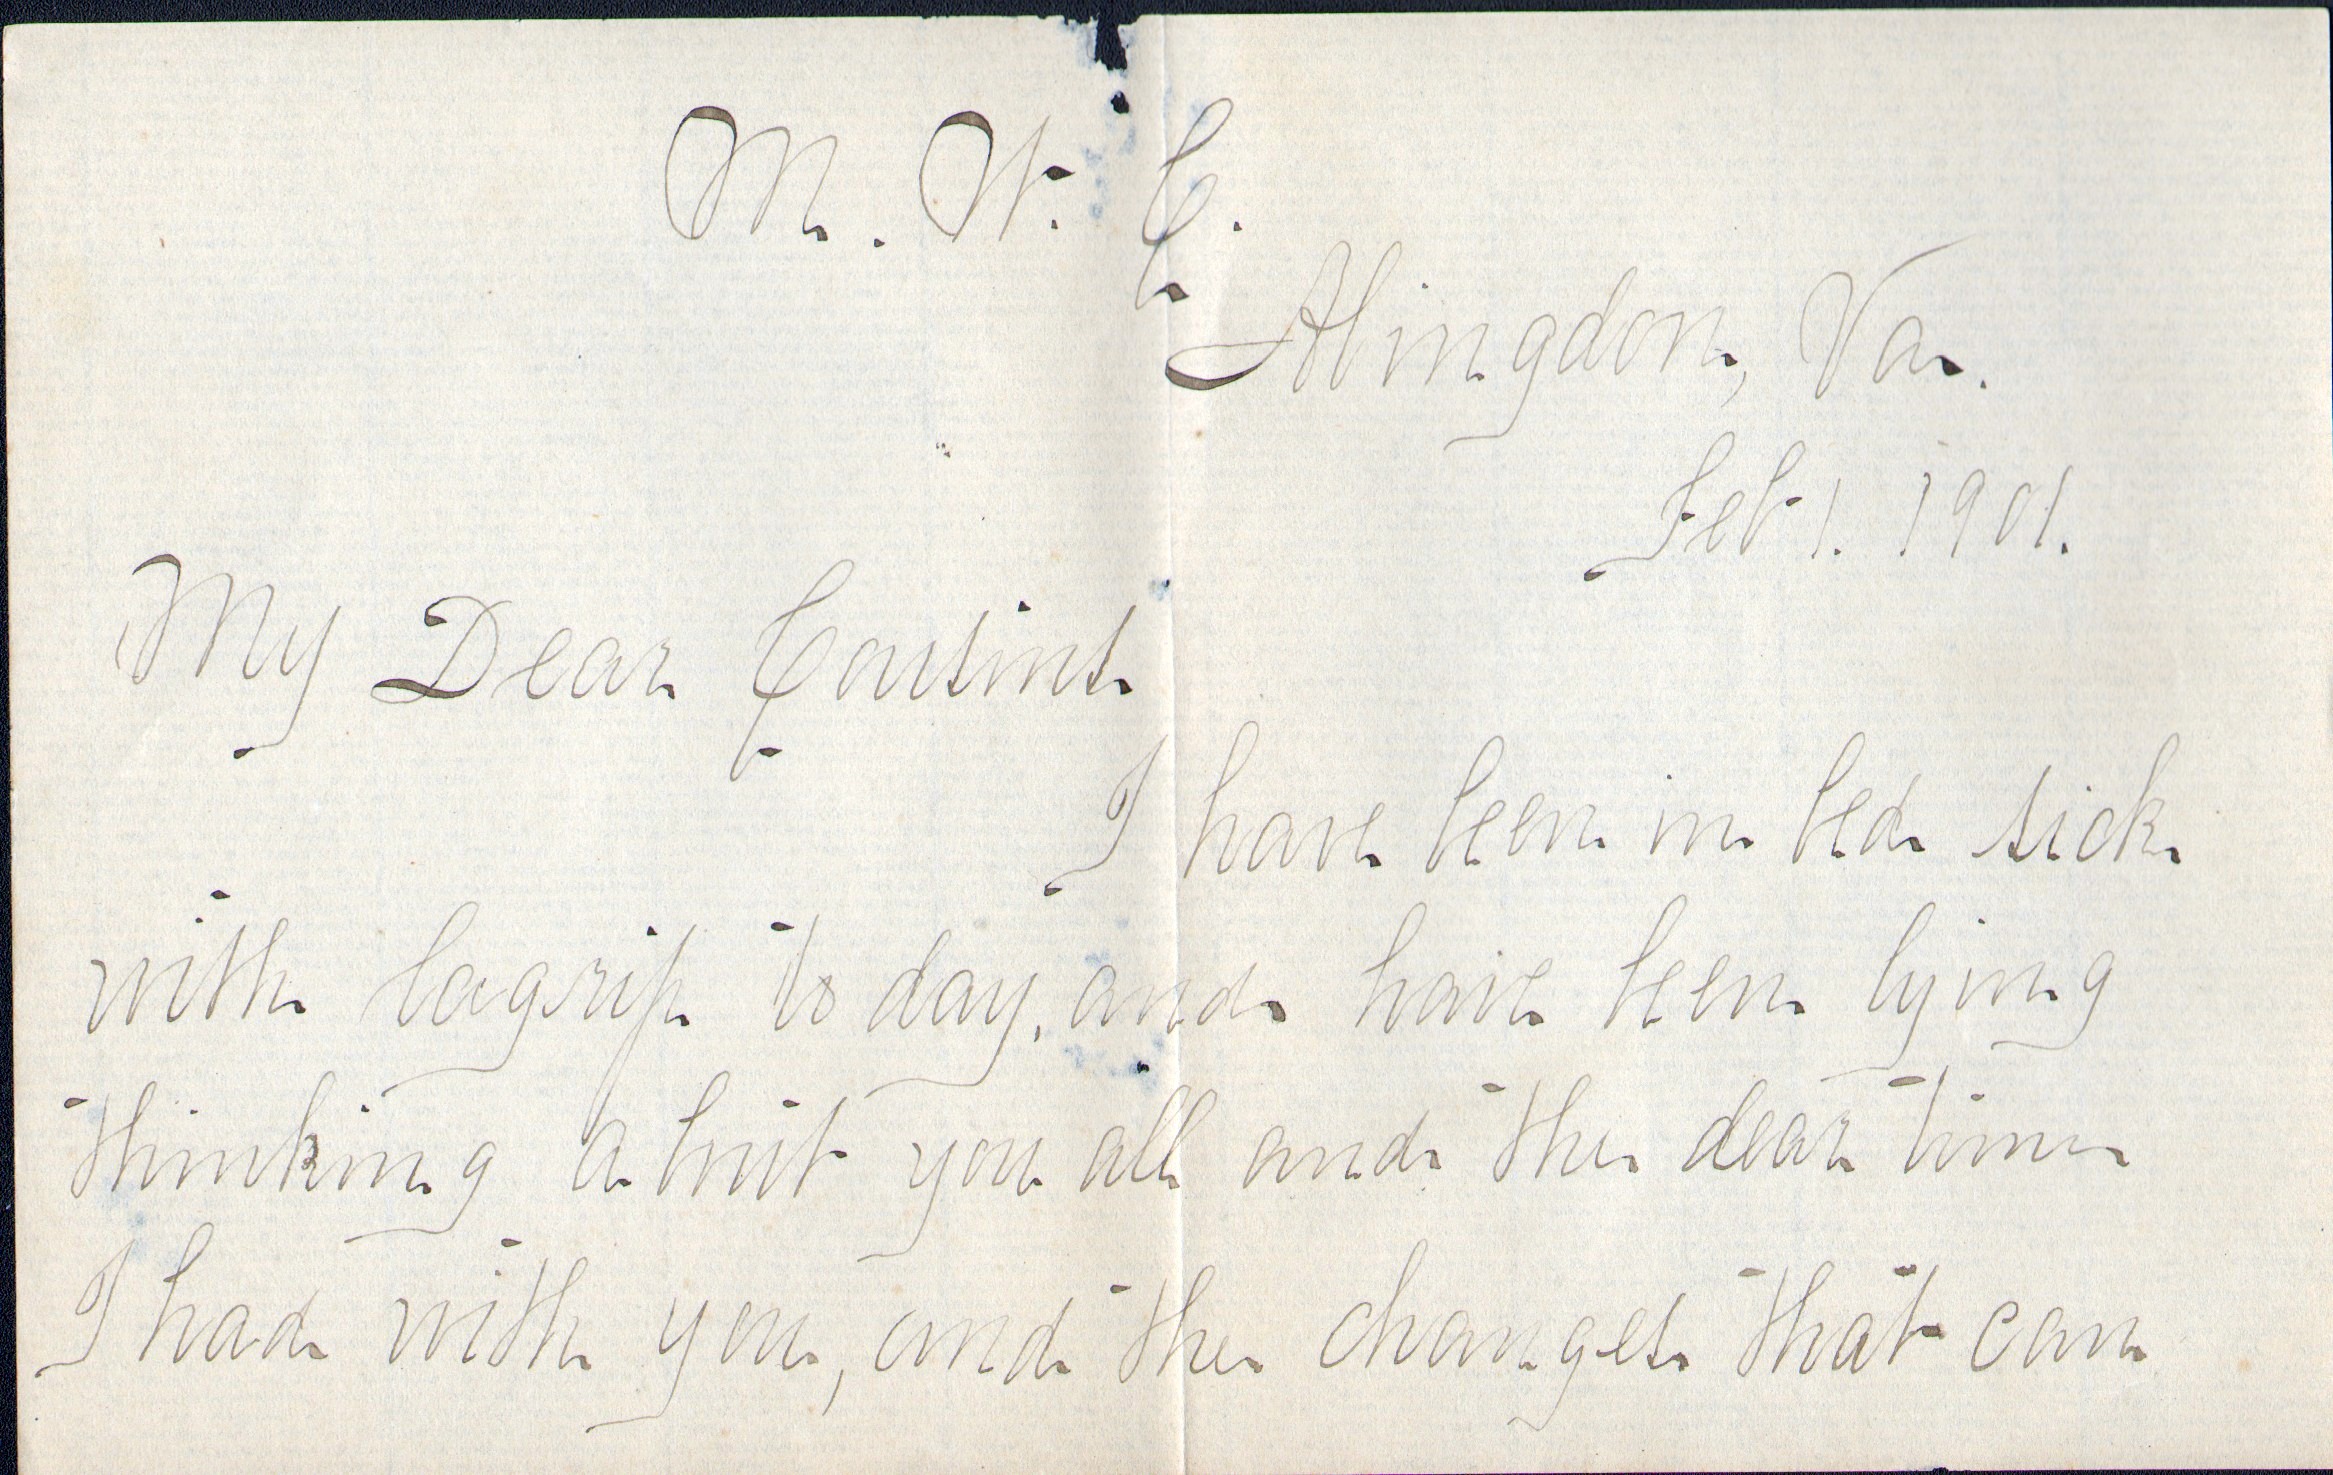 M. W. C.
Abingdon, Va.
Feb 1. 1901.
My Dear Cousins
I have been in bed sick
with lagrip to day, and have been lying
thinking a bout you all and the dear time
I had with you, and the changes that can